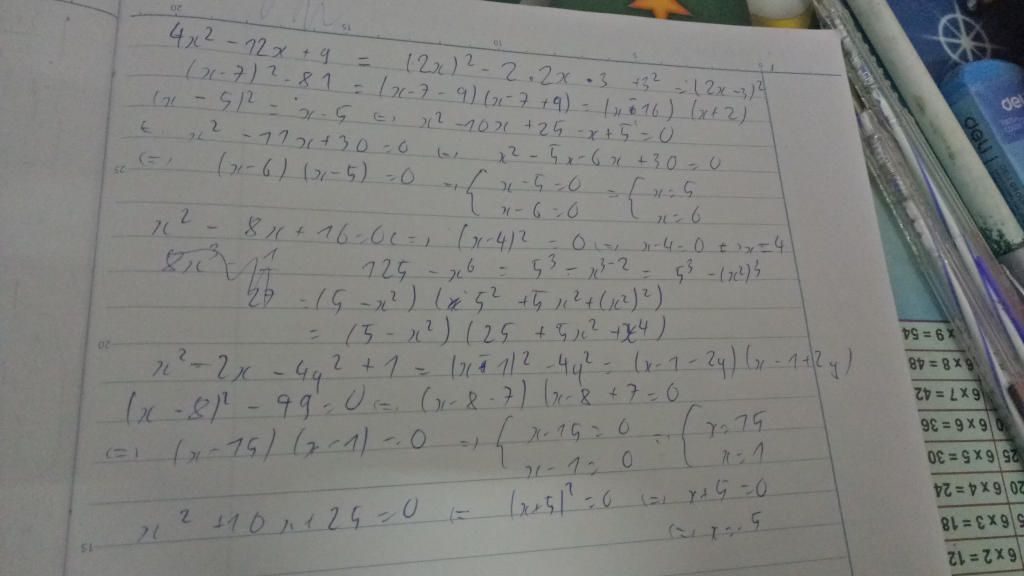 4x² - 12x + 9 = (2x)² - 2.2x.3 + 3² = (2x-3)²
(x-7)² - 81 = (x-7-9)(x-7+9) = (x-16)(x+2)
(x-5)² = x-5 <=> x² - 10x + 25 - x + 5 = 0
x² - 11x + 30 = 0 <=> x² - 5x - 6x + 30 = 0
<=> (x-6)(x-5) = 0 => { x-5=0 = { x=5
x-6=0 x=6
x² - 8x + 16 = 0 <=> (x-4)² = 0 <=> x-4=0 <=> x=4
125 - x⁶ = 5³ - x³·² = 5³ - (x²)³
= (5 - x²)(5² + 5x² + (x²)²)
= (5 - x²)(25 + 5x² + x⁴)
x² - 2x - 4y² + 1 = (x-1)² - 4y² = (x-1-2y)(x-1+2y)
(x-8)² - 49 = 0 <=> (x-8-7)(x-8+7) = 0
<=> (x-15)(x-1) = 0 => { x-15=0 = { x=15
x-1=0 x=1
x² + 10x + 25 = 0 <= (x+5)² = 0 <=> x+5=0
<=> x=-5
6 x 9 = 54
6 x 8 = 48
6 x 7 = 42
6 x 6 = 36
6 x 5 = 30
6 x 4 = 24
6 x 3 = 18
6 x 2 = 12
deli